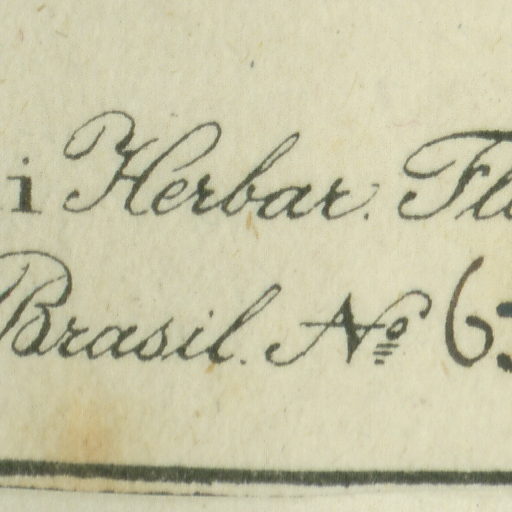 i Herbar. Fl
Brasil. Nº 6